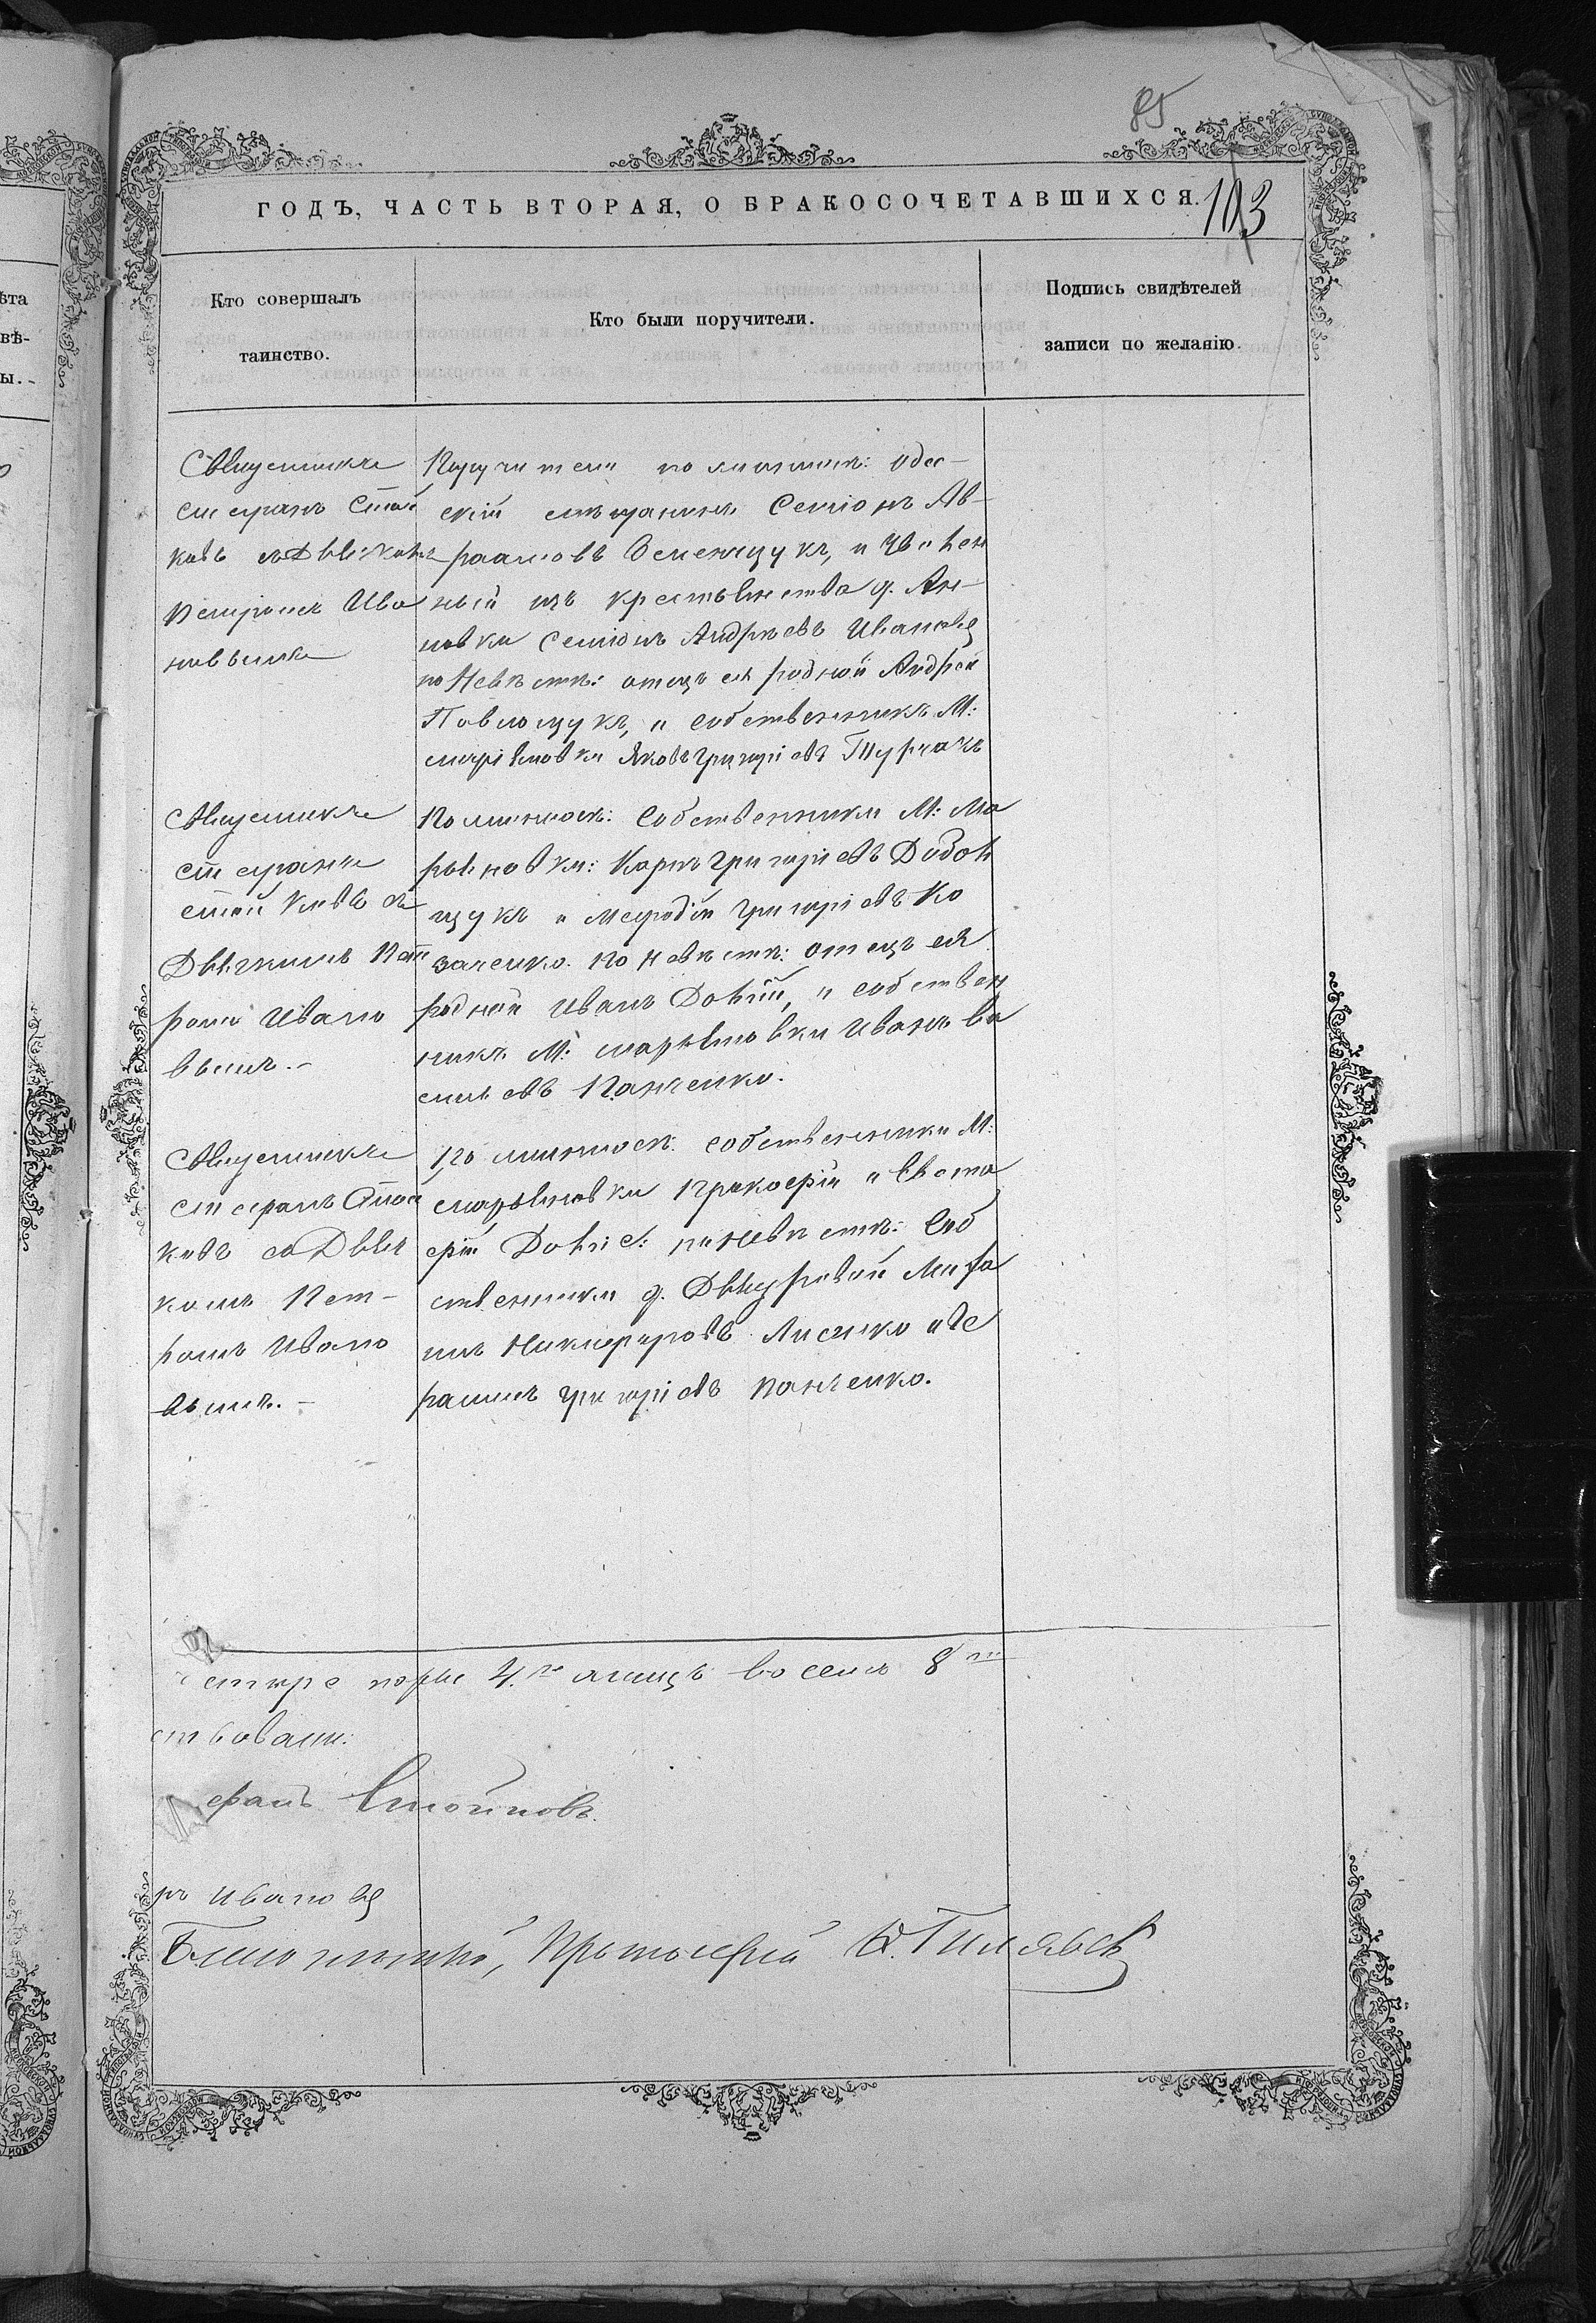 85
ГОДЪ, ЧАСТЬ ВТОРАЯ, О БРАКОСОЧЕТАВШИХСЯ.
103
Кто совершалъ
таинство.
Кто были поручители.
Подпись свидѣтелей
записи по желанію.
Священникъ
Стефанъ Стой
ковъ съ Дьячкомъ
Петромъ Ива
новымъ
Поручители по женихѣ: одес-
скій мѣщанинъ Семіонъ Ав-
раамовъ Семенцукъ, и
ный изъ крестьянства д. Ан-
новки Семіонъ Андреевъ Ивановъ
по Невѣстѣ: отецъ ея родной Андрей
Повлощукъ, и собственникъ М:
Маріяновки Яковъ Григоріевъ Турчакъ
Священникъ
Стефанъ
Стойковъ съ
Дьячкомъ Пет
ромъ Ивано
вымъ.-
По жениху: Собственники М: Ма
рьяновки: Карпъ Григоріевъ
цукъ и Мефодій Григоріевъ Ко
заченко. по невѣстѣ: отецъ ея
родной Иванъ Довгій, и собствен
никъ М: Марьяновки Иванъ Ва
сильевъ Панченко.
Священникъ
Стефанъ Стой
ковъ съ Дьяч
комъ Пет-
ромъ Ивано
вымъ.-
По жениху: собственники М:
Марьяновки Прокофій и Евста
фій Довгіе: по невѣстѣ: Соб
ственники д. Мака
имъ Никифоровъ Лисенко и Ге
расимъ Григоріевъ Панченко.
етыре пары 4. лицъ восемь 8
ствовали:
ефанъ Стойковъ.
ръ Ивановъ
Благочинный, Протоіерей